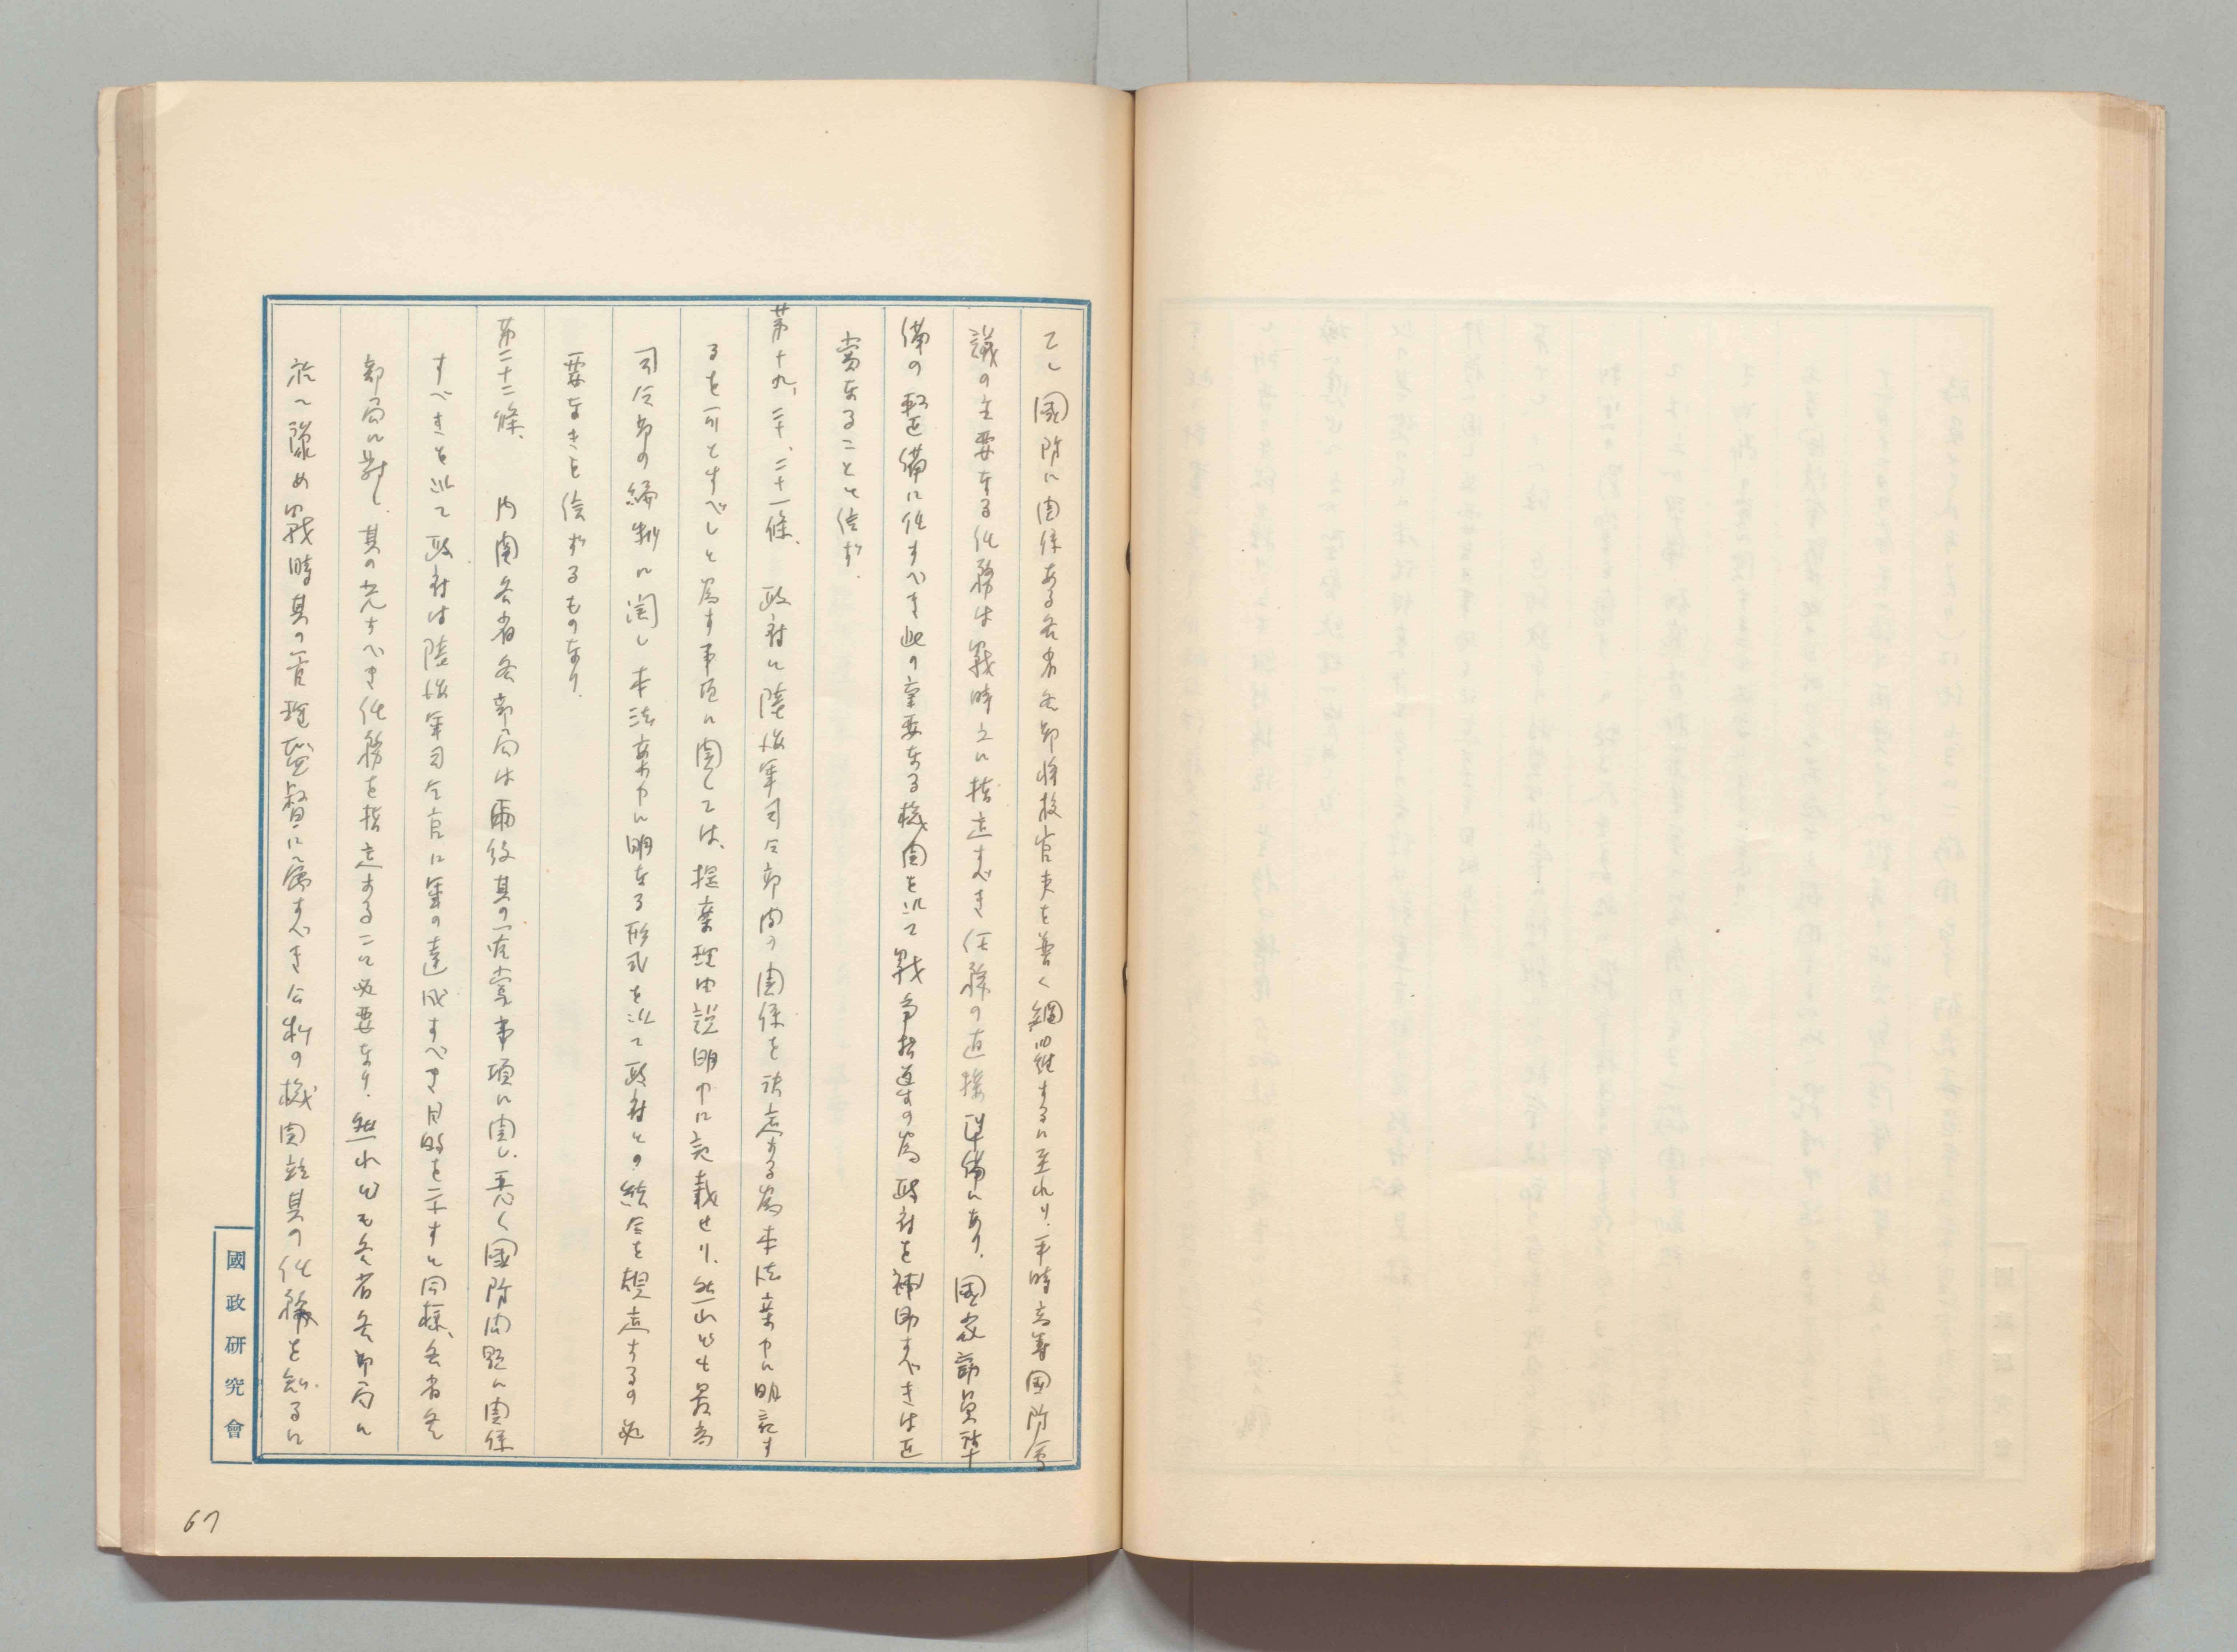 て、國防に関係ある各省各部将校官吏を普く網羅するに至れり.平時高等国防會
議の主要なる任務は戦時之に指定すべき任務の直接準備にあり.国家動員準
備の整備に任すべき此の重要なる機関を以て戦争指導の為政府を補助すべきは正
當なることゝ信ず.
第十九、二十、二十一條、政府と陸海軍司令部間の関係を決定する為本法案中に明記す
るを可とすべしと為す事項に関しては、提案理由説明中に記載せり.然れども最高
司令部の編制に関し本法案中に明なる形式を以て政府との結合を規定するの必
要なきを信ずるものなり.
第二十二條、内閣各省各部局は爾後其の管掌事項に関し、悉く國防問題に関係
すべきを以て政府は陸海軍司令官に軍の達成すべき目的を示すと同様、各省各
部局に対し.其の充すべき任務を指定すること必要なり.然れども各省各部局に
於て豫め戦時其の管理監督に属すべき公私の機関並其の任務を知るに
國政研究會
67